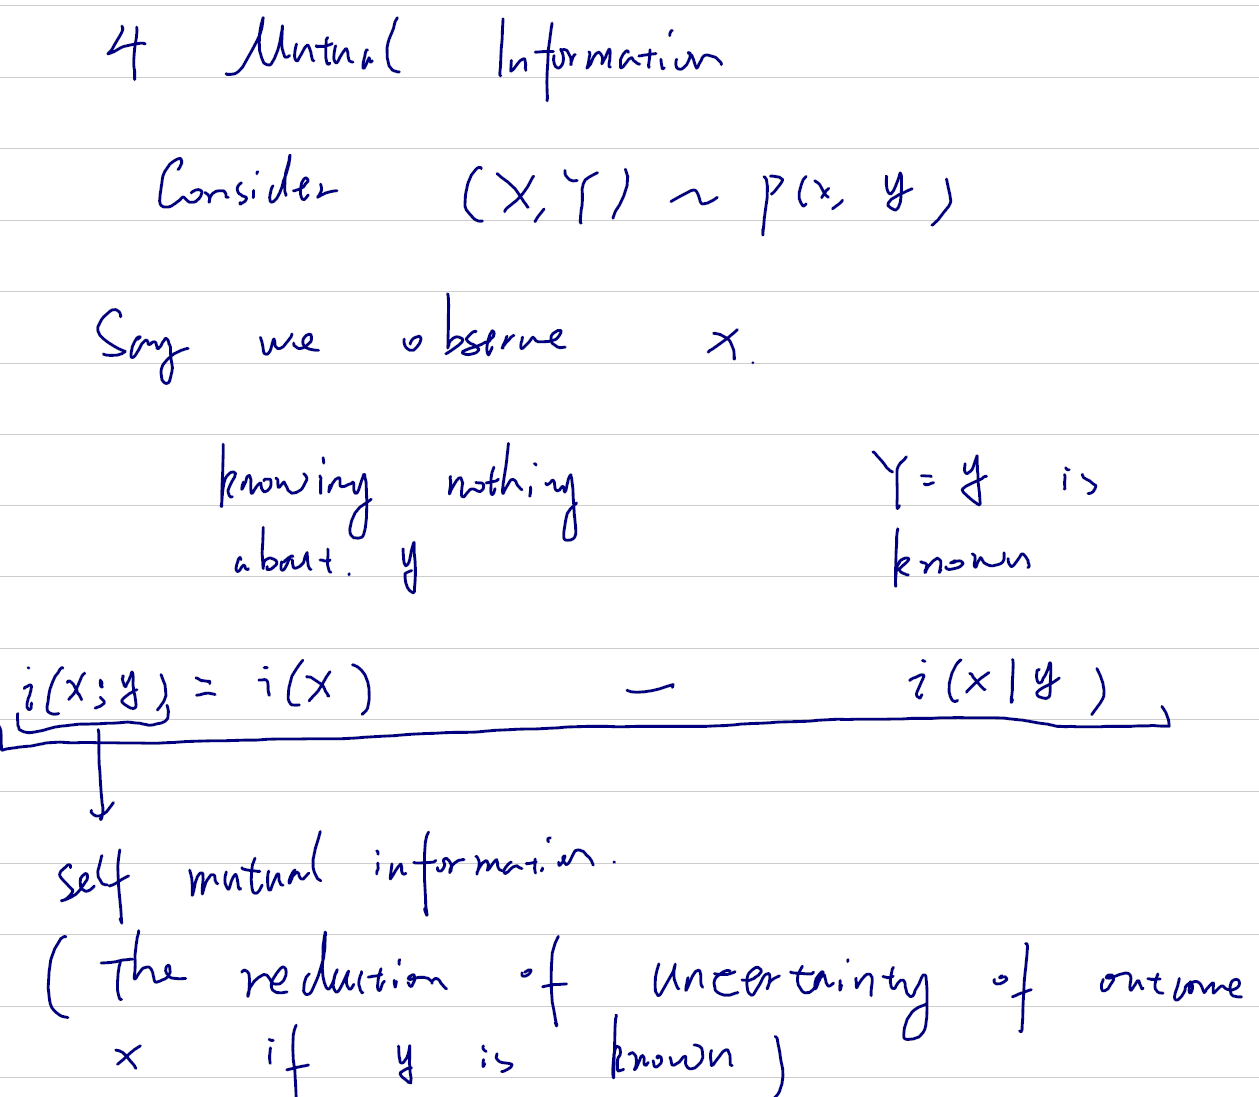 4 Mutual Information
Consider (X, Y) ~ p(x, y)
Say we observe x.
knowing nothing Y = y is
about. y known
i(x; y) = i(x) − i(x|y)
self mutual information.
(The reduction of uncertainty of outcome
x if y is known)